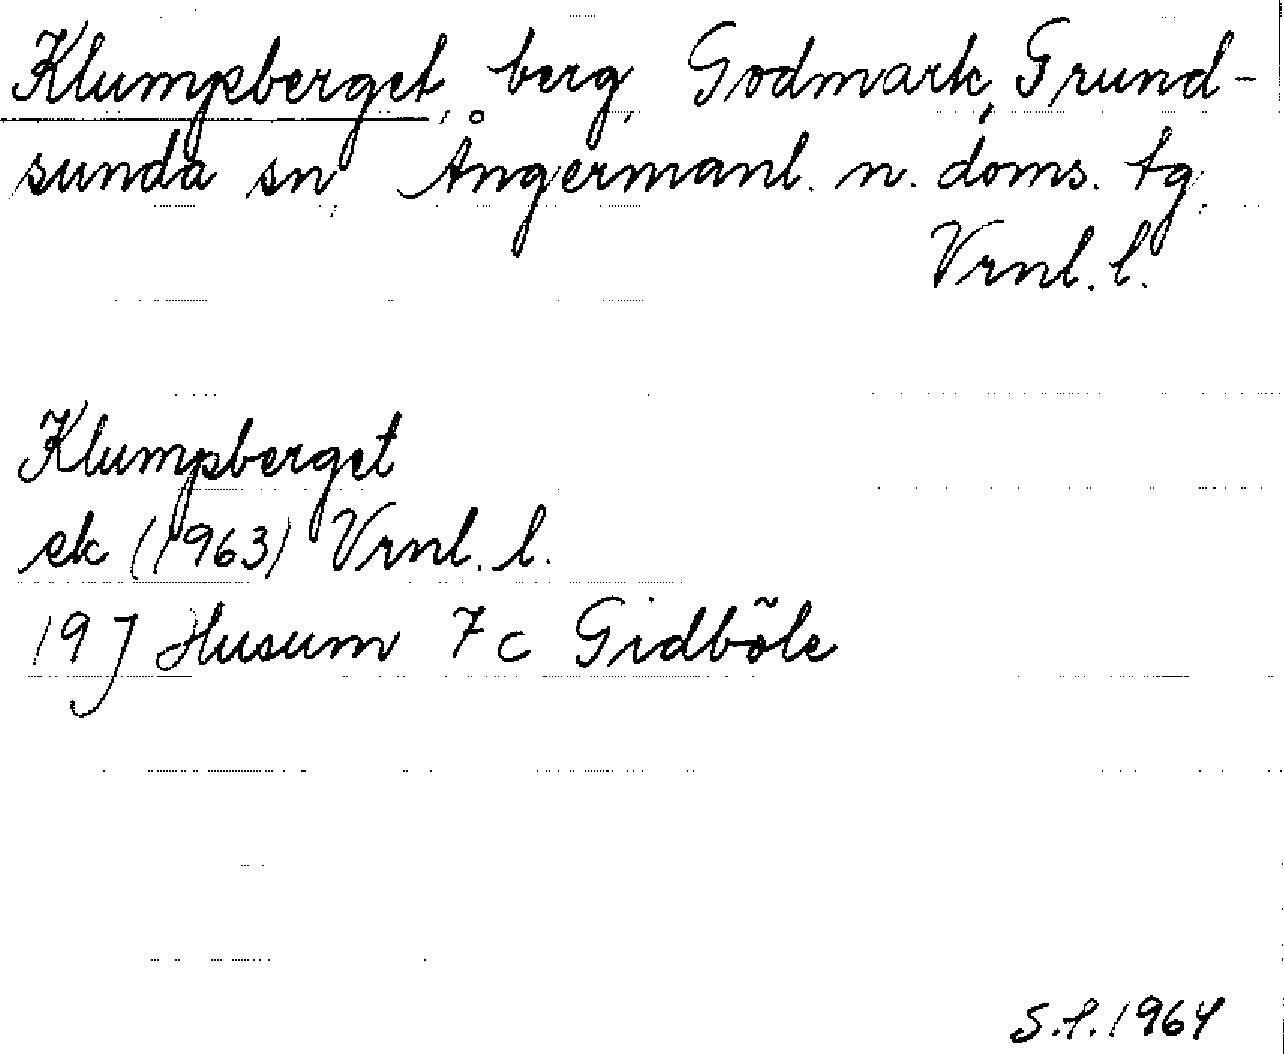 Klumpberget, berg, Godmark, Grund-
sunda sn, Ångermanl. n. doms. tg,
Vrnl. l.
Klumpberget
ek (1963) Vrnl. l.
19 J Husum 7 c Gidböle
S.f. 1964